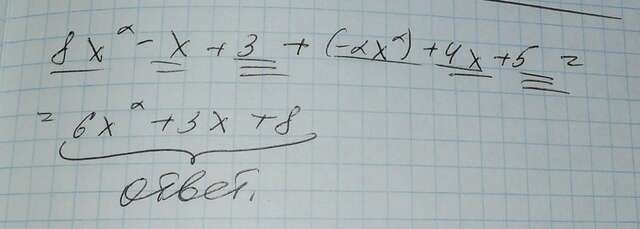 8x² - x + 3 + (-2x²) + 4x + 5 =
= 6x² + 3x + 8
ответ.